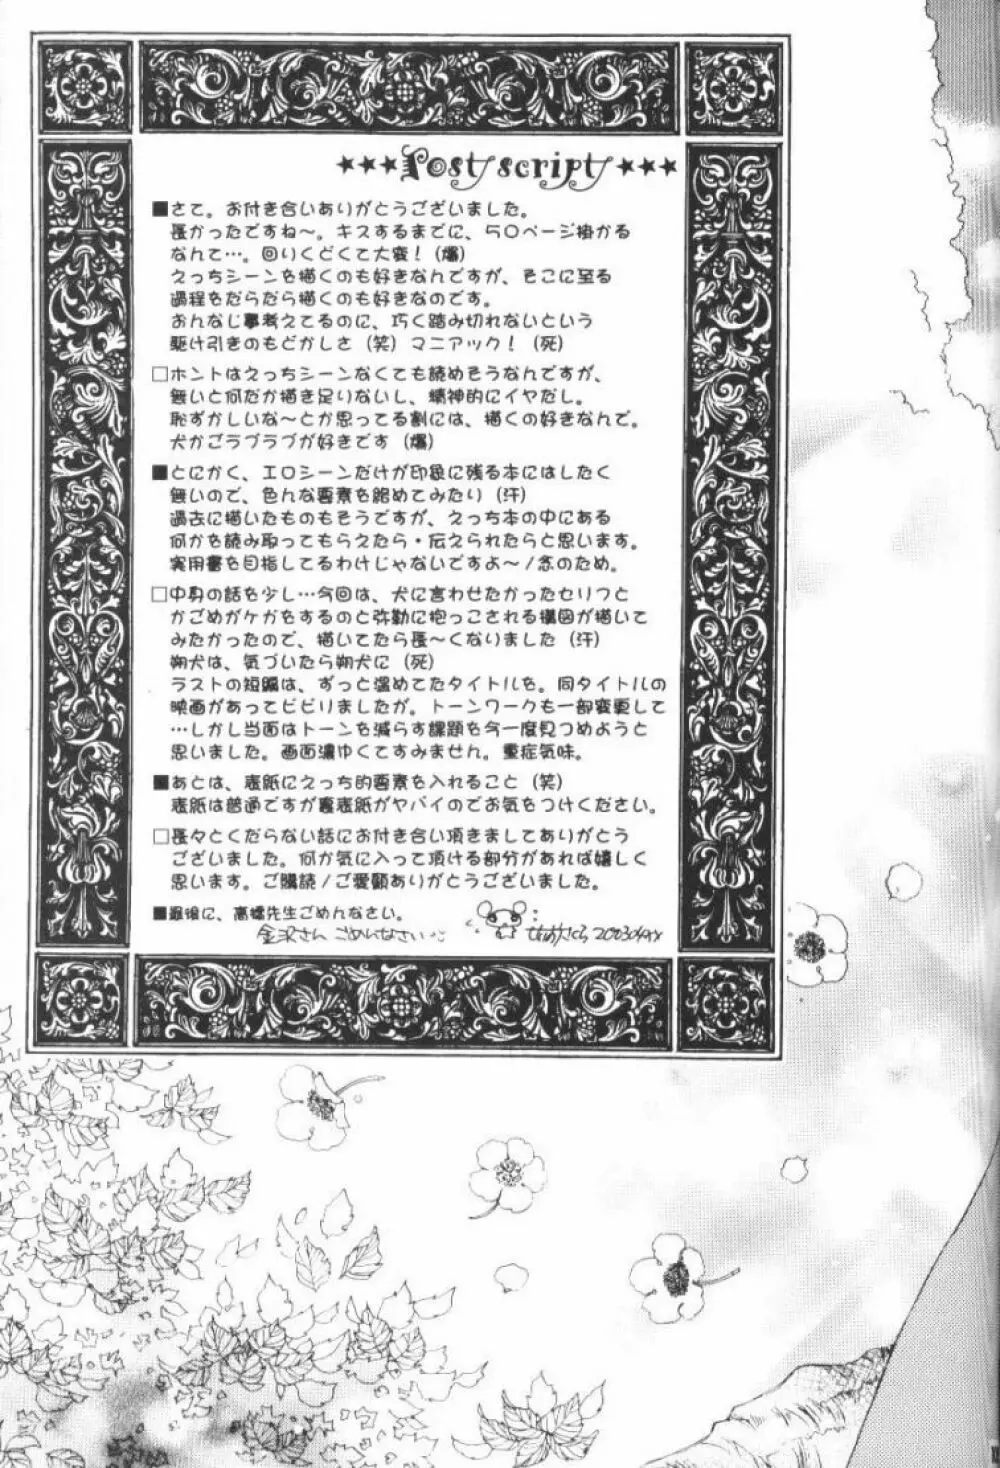 ★★★Postscript★★★
■さて。お付き合いありがとうございました。
長かったですね〜。キスするまでに、50ページ掛かる
なんて…。回りくどくて大変！（爆）
えっちシーンを描くのも好きなんですが、そこに至る
過程をだらだら描くのも好きなのです。
おんなじ事考えてるのに、巧く踏み切れないという
駆け引きのもどかしさ（笑）マニアック！（死）
□ホントはえっちシーンなくても読めそうなんですが、
無いと何だか描き足りないし、精神的にイヤだし。
恥ずかしいな〜とか思ってる割には、描くの好きなんで。
犬かごラブラブが好きです（爆）
■とにかく、エロシーンだけが印象に残る本にはしたく
無いので、色んな要素を絡めてみたり（汗）
過去に描いたものもそうですが、えっち本の中にある
何かを読み取ってもらえたら・伝えられたらと思います。
実用書を目指してるわけじゃないですよ〜！念のため。
□中身の話を少し…今回は、犬に言わせたかったセリフと
かごめがケガをするのと弥勒に抱っこされる構図が描いて
みたかったので、描いてたら長〜くなりました（汗）
朔犬は、気づいたら朔犬に（死）
ラストの短編は、ずっと温めてたタイトルを。同タイトルの
映画があってビビりましたが。トーンワークも一部変更して
…しかし当面はトーンを減らす課題を今一度見つめようと
思いました。画面濃ゆくてすみません。重症気味。
■あとは、表紙にえっち的要素を入れること（笑）
表紙は普通ですが裏表紙がヤバイのでお気をつけください。
□長々とくだらない話にお付き合い頂きましてありがとう
ございました。何か気に入って頂ける部分があれば嬉しく
思います。ご購読！ご愛顧ありがとうございました。
■最後に、高橋先生ごめんなさい。
金沢さん ごめんなさい